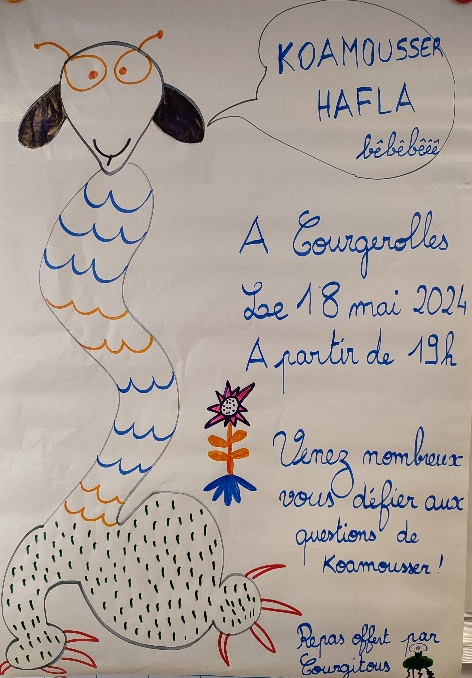 KOAMOUSSER
HAFLA
bêbêbêêê
A Courgerolles
Le 18 mai 2024
A partir de 19h
Venez nombreux
vous défier aux
questions de
Koamousser !
Repas offert par
Courgitous